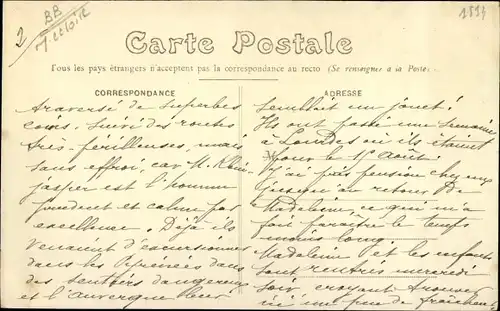 2
BB
1554
Carte Postale
Tous les pays étrangers n'acceptent pas la correspondance au recto (Se renseigner à la Poste)
CORRESPONDANCE
traversé de superbes
coins. Suivi des routes
très périlleuses, mais
sans effroi, car M.
est l'homme
prudent et calme par
excellence. Déjà ils
venaient d'excursionner
dans les Pyrénées dans
des sentiers dangereux
et l'Auvergne leur
ADRESSE
semblait un jouet!
Ils ont passé une semaine
à Lourdes où ils étaient
pour le 15 Août.
J'ai pris pension chez eux
jusqu'au retour de
Madeleine, ce qui m'a
fait paraître le temps
moins long.
Madeleine et les enfants
sont rentrés mercredi
soir croyant trouver
ici un peu de fraîcheur